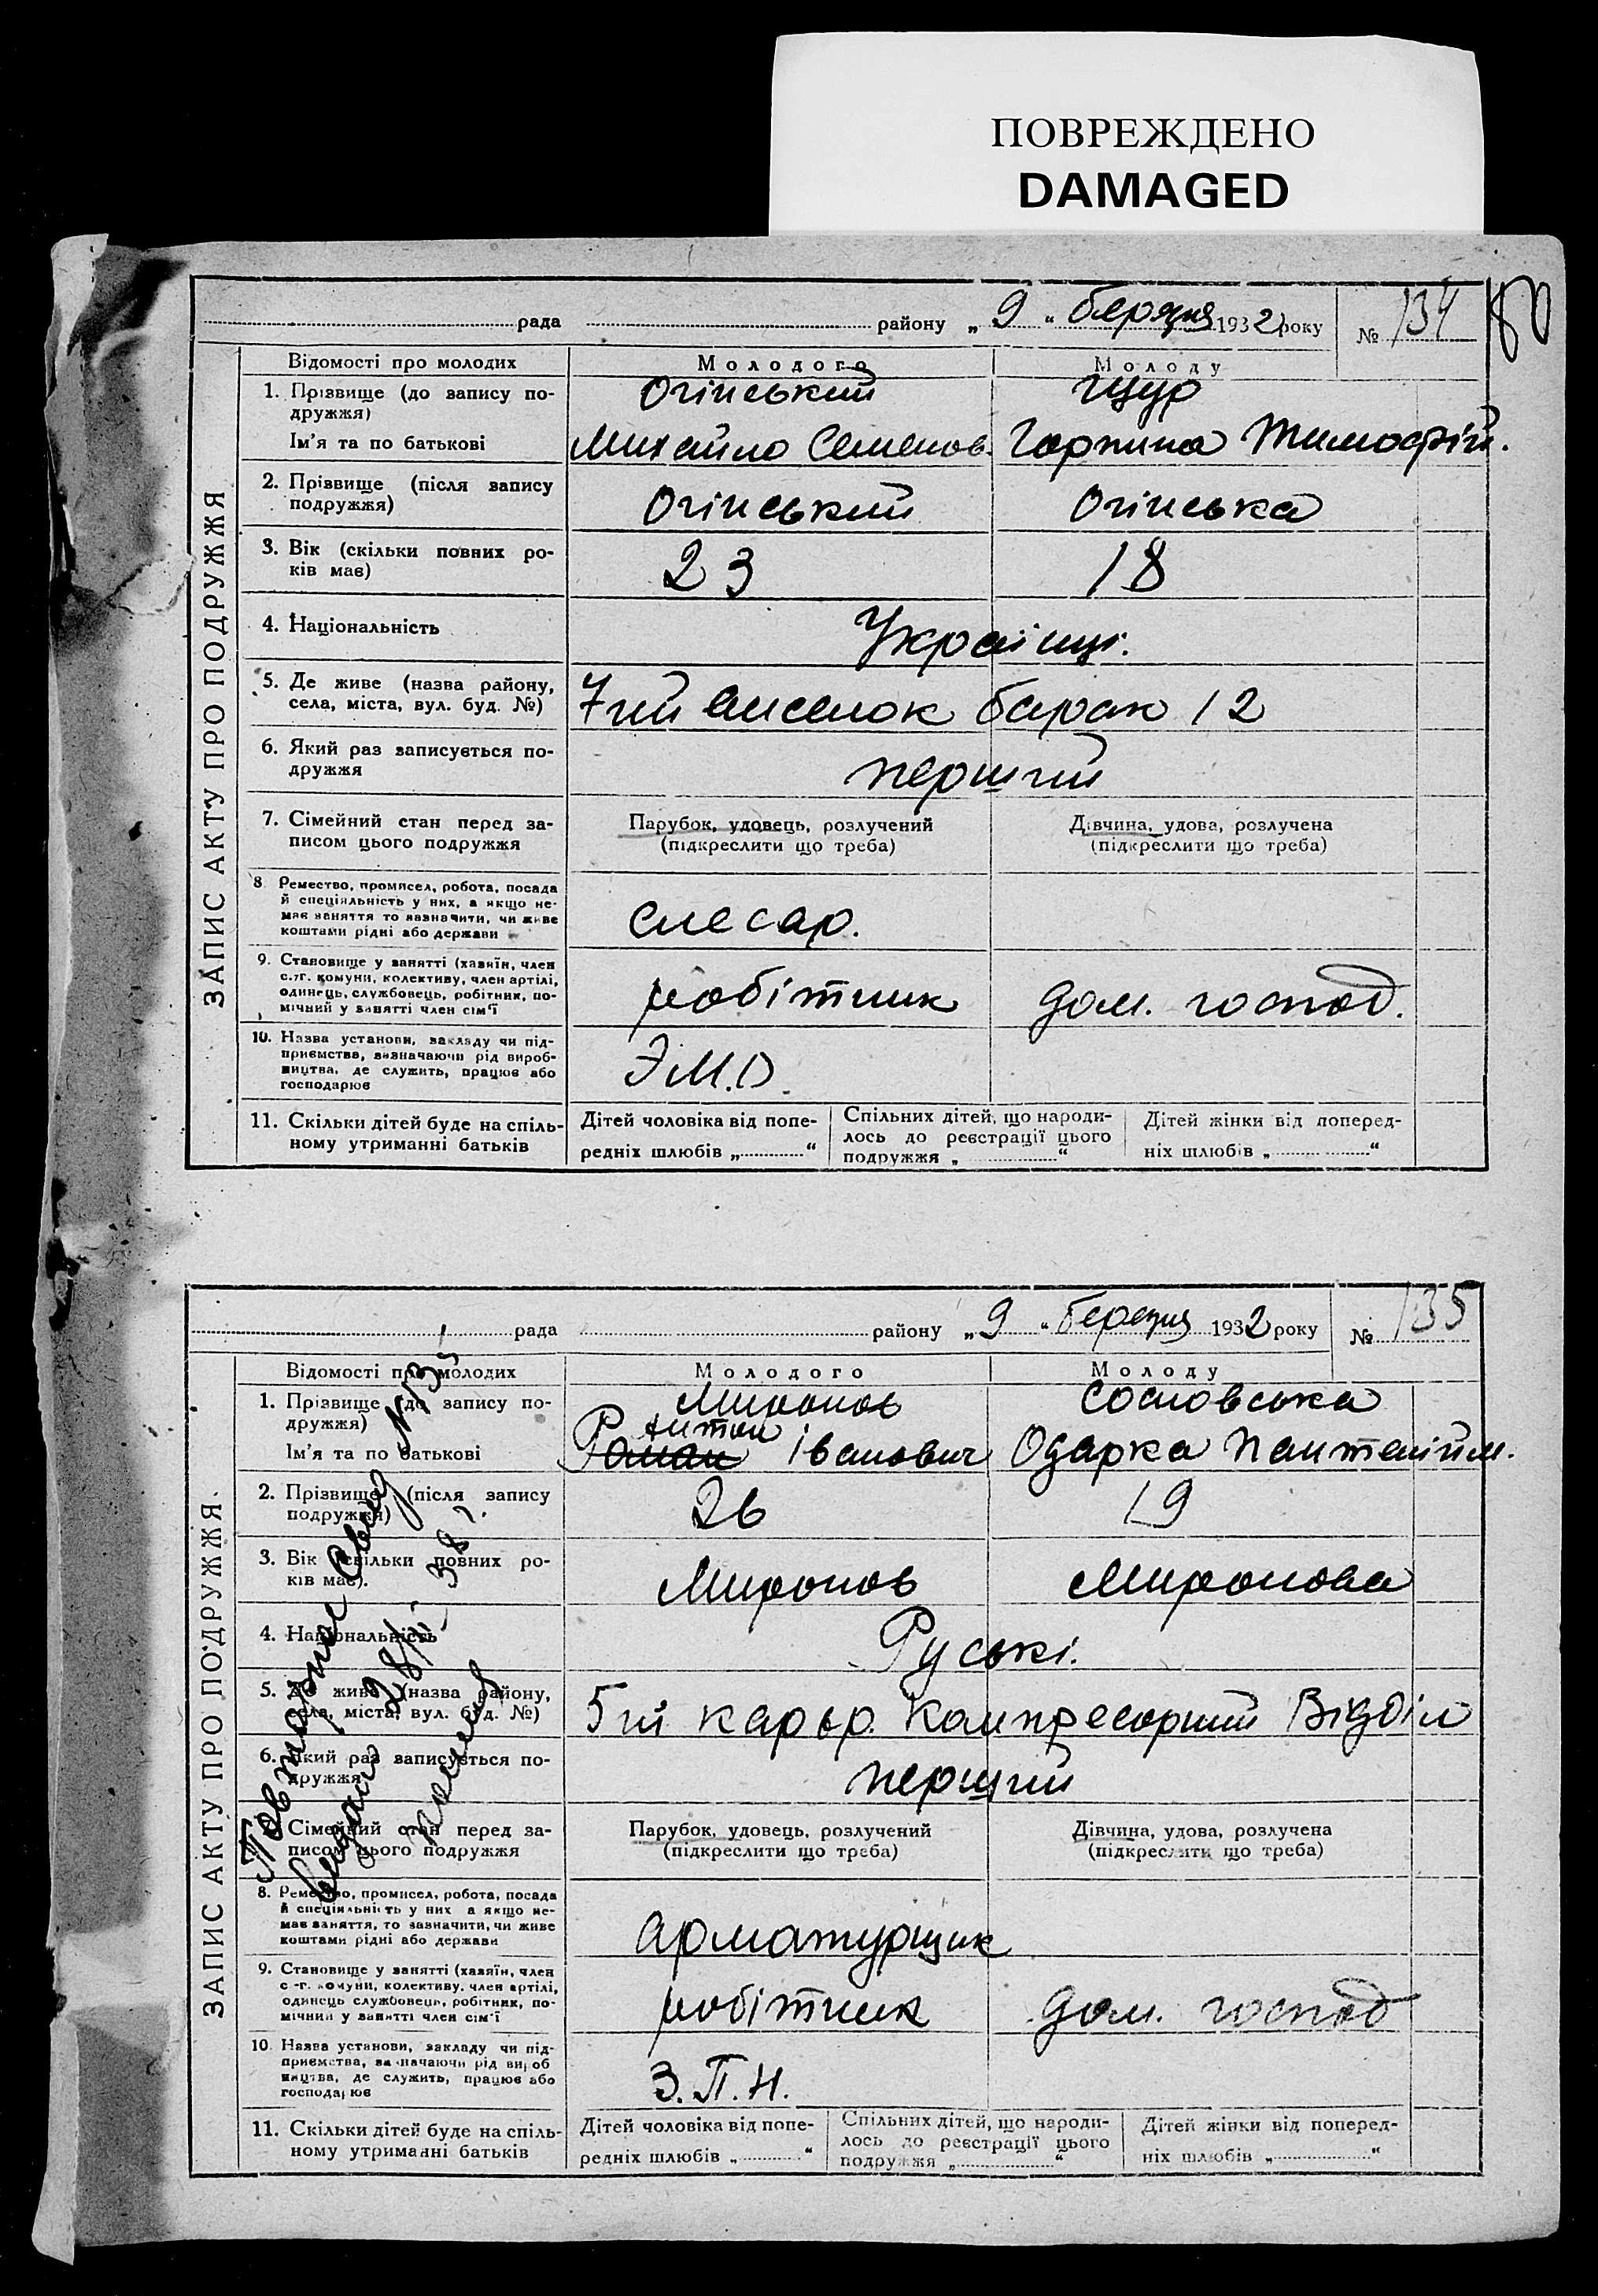 ПОВРЕЖДЕНО
DAMAGED
рада района „ 9 “ березня 1932 року № 134
80
ЗАПИС АКТУ ПРО ПОДРУЖЖЯ
Відомості про молодих Молодого Молоду
1. Прізвище (до запису по-
дружжя) Огінський Щур
Ім’я та по батькові Михайло Семенов. Горпина Тимофій.
2. Прізвище (після запису
подружжя) Огінський Огінська
3. Вік (скільки повних ро-
ків має) 23 18
4. Національність Українці.
5. Де живе (назва району,
села, міста, вул. буд. №) 7ий виселок барак 12
6. Який раз записується по-
дружжя перший
7. Сімейний стан перед за-
писом цього подружжя
Парубок, удовець, розлучений
(підкреслити що треба)
Дівчина, удова, розлучена
(підкреслити що треба)
8. Ремество, промисел, робота, посада
й спеціяльність у них, а якщо не-
має заняття то зазначити, чи живе
коштами рідні або держави слесар.
9. Становище у занятті (хазяїн, член
с.-г. комуни, колективу, член артілі,
одинець, службовець, робітник, по-
мічний у занятті член сім’ї робітник дом. господ.
10. Назва установи, закладу чи під-
приємства, визначаючи рід вироб-
ництва, де служить, працює або
господарює Э.М.О
11. Скільки дітей буде на спіль-
ному утриманні батьків
Дітей чоловіка від попе-
редніх шлюбів „ “
Спільних дітей, що народи-
лось до реєстрації цього
подружжя „ “
Дітей жінки від поперед-
ніх шлюбів „ “
рада району „ 9 “ березня 1932 року № 135
ЗАПИС АКТУ ПРО ПОДРУЖЖЯ.
Відомості про молодих Молодого Молоду
1. Прізвище (до запису по-
дружжя) Миронов Сосновська
Антон
Ім’я та по батькові Роман Іванович Одарка Пантелійм.
2. Прізвище (після запису
подружжя) 26 19
3. Вік (скільки повних ро-
ків має). Миронов Миронова
4. Національність Руські.
5. Де живе (назва району,
села, міста, вул. буд. №) 5ий карьєр. Компресорний Відділ
6. Який раз записується по-
дружжя перший
7. Сімейний стан перед за-
писом цього подружжя
Парубок, удовець, розлучений
(підкреслити що треба)
Дівчина, удова, розлучена
(підкреслити що треба)
8. Ремество, промисел, робота, посада
й спеціяльність у них а якщо не-
має заняття, то зазначити, чи живе
коштами рідні або держави арматурщик
9. Становище у занятті (хазяїн, член
с.-г. комуни, колективу, член артілі,
одинець службовець, робітник, по-
мічний у занятті член сім’ї робітник дом. господ
10. Назва установи, закладу чи під-
приємства, зазначаючи рід вироб
ництва, де служить, працює або
господарює З.П.Н.
11. Скільки дітей буде на спіль-
ному утриманні батьків
Дітей чоловіка від попе-
редніх шлюбів „ “
Спільних дітей, що народи-
лось до реєстрації цього
подружжя „ “
Дітей жінки від поперед-
ніх шлюбів „ “
Повторне
видано